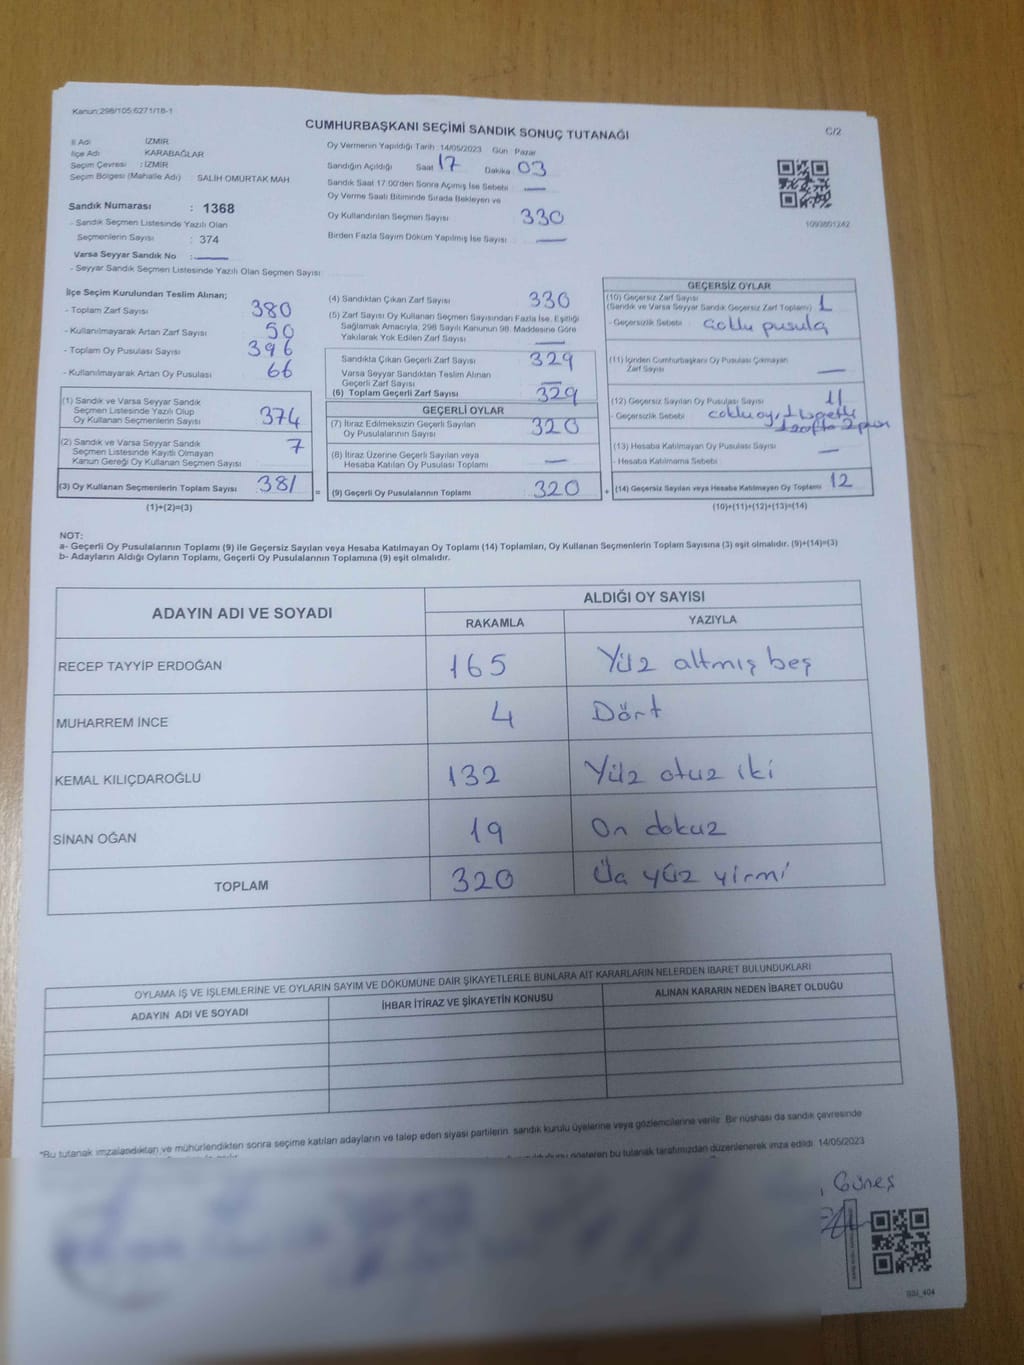 Kanun:298/105;6271/18-1
CUMHURBAŞKANI SEÇİMİ SANDIK SONUÇ TUTANAĞI
C/2
İl Adı : İZMİR
İlçe Adı : KARABAĞLAR
Seçim Çevresi : İZMİR
Seçim Bölgesi (Mahalle Adı) : SALİH OMURTAK MAH.
Sandık Numarası : 1368
- Sandık Seçmen Listesinde Yazılı Olan
Seçmenlerin Sayısı : 374
Varsa Seyyar Sandık No :
- Seyyar Sandık Seçmen Listesinde Yazılı Olan Seçmen Sayısı
Oy Vermenin Yapıldığı Tarih :14/05/2023 Gün Pazar
Sandığın Açıldığı Saat 17 Dakika 03
Sandık Saat 17:00'den Sonra Açmış İse Sebebi : —
Oy Verme Saati Bitiminde Sırada Bekleyen ve
Oy Kullandırılan Seçmen Sayısı 330
Birden Fazla Sayım Döküm Yapılmış İse Sayısı —
1093801242
İlçe Seçim Kurulundan Teslim Alınan;
- Toplam Zarf Sayısı 380
- Kullanılmayarak Artan Zarf Sayısı 50
- Toplam Oy Pusulası Sayısı 396
- Kullanılmayarak Artan Oy Pusulası 66
(1) Sandık ve Varsa Seyyar Sandık
Seçmen Listesinde Yazılı Olup
Oy Kullanan Seçmenlerin Sayısı 374
(2) Sandık ve Varsa Seyyar Sandık
Seçmen Listesinde Kayıtlı Olmayan
Kanun Gereği Oy Kullanan Seçmen Sayısı 7
(3) Oy Kullanan Seçmenlerin Toplam Sayısı 381
(1)+(2)=(3)
=
(4) Sandıktan Çıkan Zarf Sayısı 330
(5) Zarf Sayısı Oy Kullanan Seçmen Sayısından Fazla İse, Eşitliği
Sağlamak Amacıyla, 298 Sayılı Kanunun 98. Maddesine Göre
Yakılarak Yok Edilen Zarf Sayısı —
Sandıkta Çıkan Geçerli Zarf Sayısı 329
Varsa Seyyar Sandıktan Teslim Alınan
Geçerli Zarf Sayısı —
(6) Toplam Geçerli Zarf Sayısı 329
GEÇERLİ OYLAR
(7) İtiraz Edilmeksizin Geçerli Sayılan
Oy Pusulalarının Sayısı 320
(8) İtiraz Üzerine Geçerli Sayılan veya
Hesaba Katılan Oy Pusulası Toplamı —
(9) Geçerli Oy Pusulalarının Toplamı 320
+
GEÇERSİZ OYLAR
(10) Geçersiz Zarf Sayısı
(Sandık ve Varsa Seyyar Sandık Geçersiz Zarf Toplamı) 1
- Geçersizlik Sebebi : pusula
(11) İçinden Cumhurbaşkanı Oy Pusulası Çıkmayan
Zarf Sayısı —
(12) Geçersiz Sayılan Oy Pusulası Sayısı 11
- Geçersizlik Sebebi :
(13) Hesaba Katılmayan Oy Pusulası Sayısı —
- Hesaba Katılmama Sebebi :
(14) Geçersiz Sayılan veya Hesaba Katılmayan Oy Toplamı 12
(10)+(11)+(12)+(13)=(14)
NOT:
a- Geçerli Oy Pusulalarının Toplamı (9) ile Geçersiz Sayılan veya Hesaba Katılmayan Oy Toplamı (14) Toplamları, Oy Kullanan Seçmenlerin Toplam Sayısına (3) eşit olmalıdır. (9)+(14)=(3)
b- Adayların Aldığı Oyların Toplamı, Geçerli Oy Pusulalarının Toplamına (9) eşit olmalıdır.
ADAYIN ADI VE SOYADI
ALDIĞI OY SAYISI
RAKAMLA YAZIYLA
RECEP TAYYİP ERDOĞAN 165 Yüz altmış beş
MUHARREM İNCE 4 Dört
KEMAL KILIÇDAROĞLU 132 Yüz otuz iki
SİNAN OĞAN 19 On dokuz
TOPLAM 320 Üç yüz yirmi
OYLAMA İŞ VE İŞLEMLERİNE VE OYLARIN SAYIM VE DÖKÜMÜNE DAİR ŞİKAYETLERLE BUNLARA AİT KARARLARIN NELERDEN İBARET BULUNDUKLARI
ADAYIN ADI VE SOYADI İHBAR İTİRAZ VE ŞİKAYETİN KONUSU ALINAN KARARIN NEDEN İBARET OLDUĞU
"Bu tutanak imzalandıktan ve mühürlendikten sonra seçime katılan adayların ve talep eden siyasi partilerin, sandık kurulu üyelerine veya gözlemcilerine verilir. Bir nüshası da sandık çevresinde
gösteren bu tutanak tarafımızdan düzenlenerek imza edildi. 14/05/2023
Güneş
GSI_404